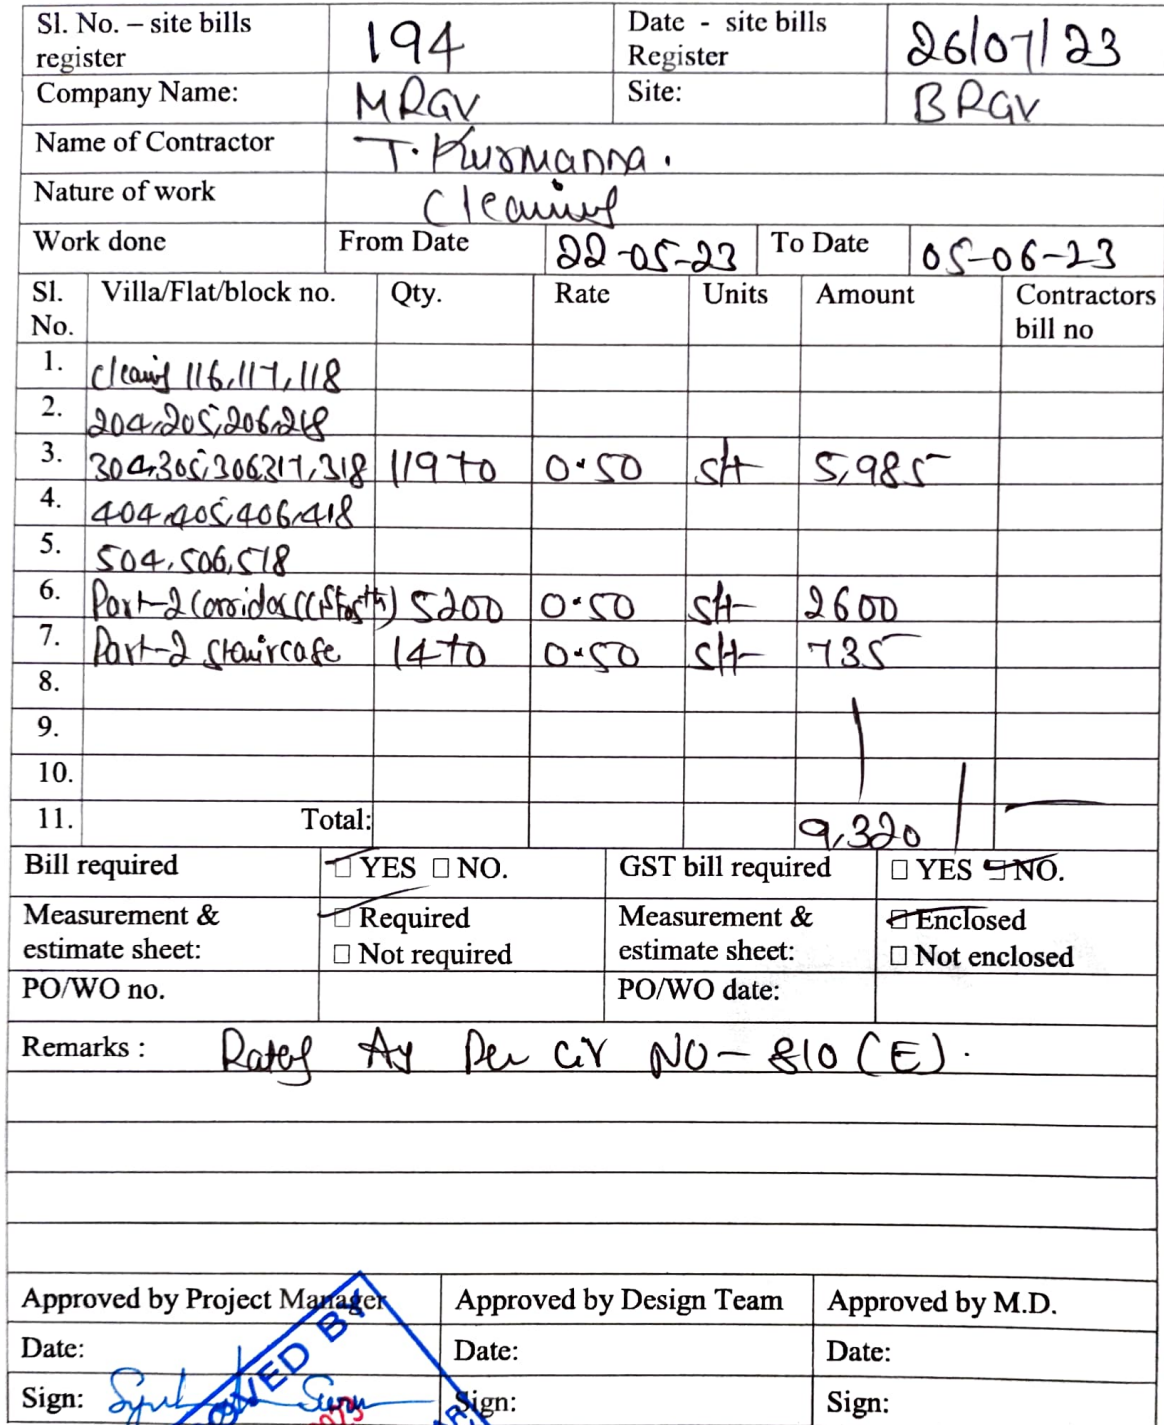 Sl. No. – site bills register 194 Date - site bills Register 26/07/23
Company Name: MRGV Site: BRGV
Name of Contractor T. Kurmanna.
Nature of work Cleaning
Work done From Date 22-05-23 To Date 05-06-23
Sl. No. Villa/Flat/block no. Qty. Rate Units Amount Contractors bill no
1. Cleaing 116,117,118
2. 204,205,206,218
3. 304,305,306,317,318 11970 0.50 sft 5,985
4. 404,405,406,418
5. 504,506,518
6. Part-2 Corridor 5200 0.50 sft 2600
7. Part-2 Staircase 1470 0.50 sft 735
8.
9.
10.
11. Total: 9,320
Bill required YES NO. GST bill required YES NO.
Measurement & estimate sheet: Required Not required Measurement & estimate sheet: Enclosed Not enclosed
PO/WO no. PO/WO date:
Remarks : Rates As Per Cir NO-810 (E).
Approved by Project Manager Approved by Design Team Approved by M.D.
Date: Date: Date:
Sign: Sign: Sign: